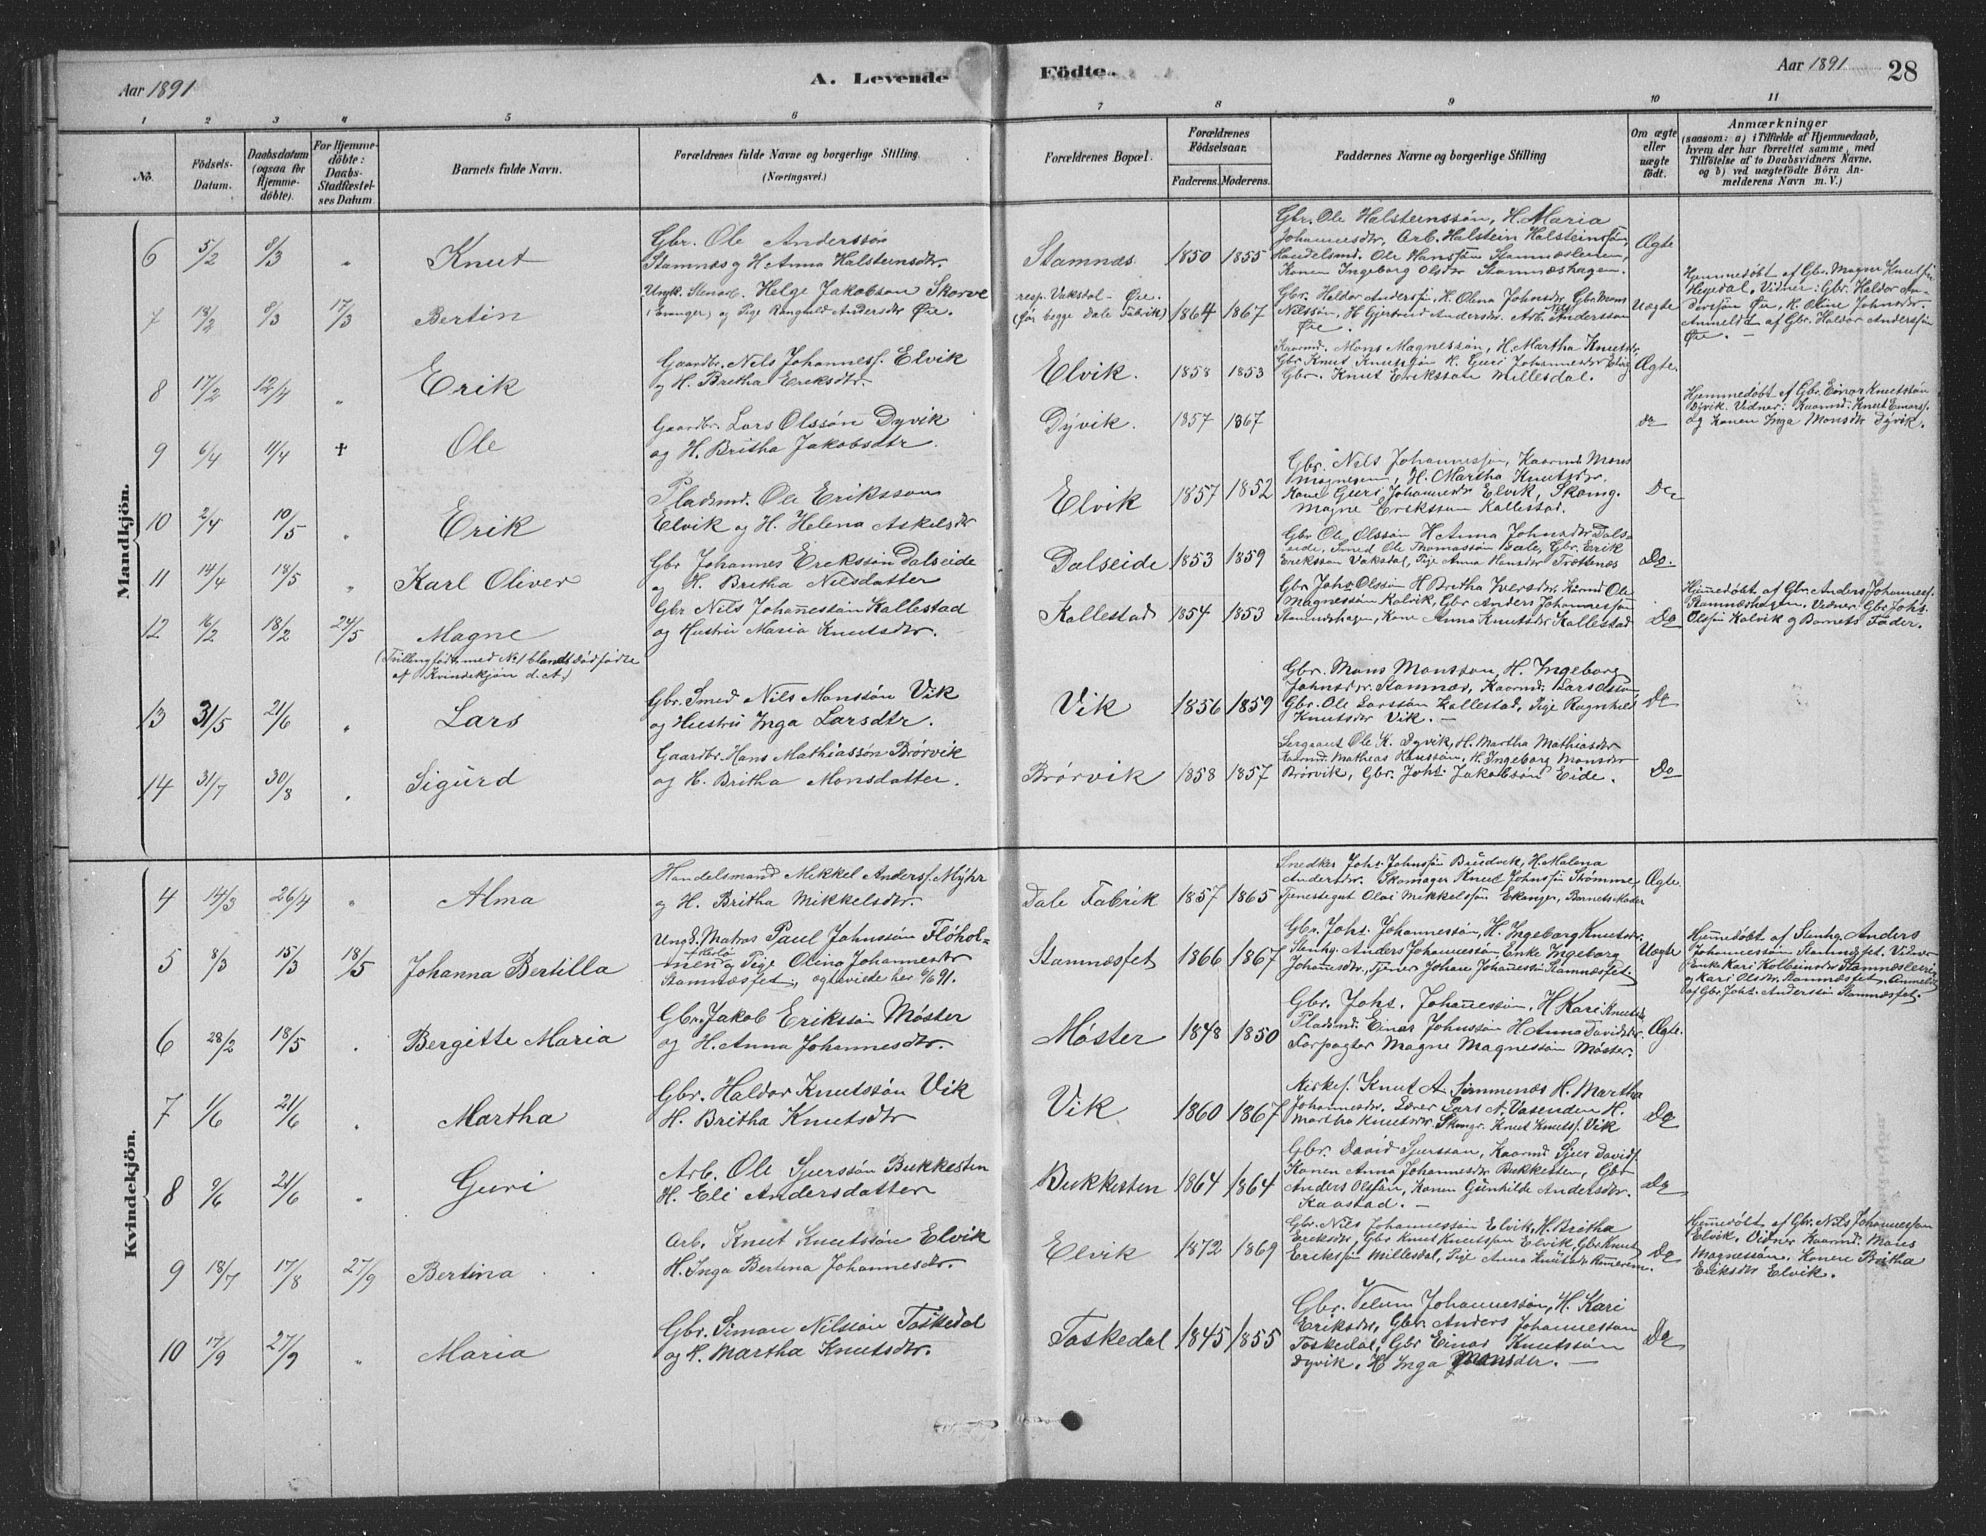 Aar 1891
A. Levende
Födte.
Aar 1891
28
1
2
3
4
5
6
7
8
9
10
11
No.
Födsels-
Datum.
Daabsdatum
(ogsaa for
Hjemme-
döbte).
For Hjemme-
döbte:
Daabs-
Stadfæstel-
ses Datum.
Barnets fulde Navn.
Forældrenes fulde Navne og borgerlige Stilling.
(Næringsvei.)
Forældrenes Bopæl.
Forældrenes
Födselsaar.
Faderens.
Moderens.
Faddernes Navne og borgerlige Stilling
Om ægte
eller
uægte
födt.
Anmærkninger
(saasom: a) i Tilfælde af Hjemmedaab,
hvem der har forrettet samme, med
Tilföielse af to Daabsvidners Navne,
og b) ved uægtefödte Börn An-
melderens Navn m. V.)
Mandkjön.
6 5/2 8/3 " Knut
Gbr. Ole Anderssøn
Stamnæs og H. Anna Halsteinsdtr.
Stamnæs 1850 1855
Gbr. Ole Halsteinssøn, H. Maria
Johannesdtr, Arb. Halstein Halsteinssøn,
Handelsmd. Ole Hanssøn Stamnæsleiren,
Konen Ingeborg Olsdtr Stamnæshagen.
Ægte
7 18/2 8/3 17/3 Bertin
Helge Jakobson Skorve
(Evanger) og Pige Ragnhild Andersdtr Øie.
resp. Vaksdal - Øie.
(for begge Dale Fabrik) 1864 1867
Gbr. Haldor Anderssøn, H. Olina Johnsdtr, Gbr. Mons
Nilssøn, H. Gjertrud Andersdtr. Arb. Anderssøn
Øie.
Uægte
Hjemmedøbt af Gbr. Magne Knutssøn
Hegedal, Vidner: Gbr. Haldor An-
derssøn Øie, H. Oline Johnsdtr.
Anmeldt af Gbr. Haldor Anderssøn
Øie. —
8 17/2 12/4 " Erik
Gaardbr. Nils Johanness. Elvik
og H. Britha Eriksdtr.
Elvik. 1858 1853
Kaarmd. Mons Magnessøn, H. Martha Knutsdtr,
Gbr. Knut Knutssøn H. Guri Johannesdtr Elvig
Gbr. Knut Eriksson Millesdal.
Ægte.
9 6/4 11/4 + Ole
Gaardbr. Lars Olssøn Dyvik
og H. Britha Jakobsdtr.
Dyvik. 1857 1867
do
Hjemmedøbt af Gbr. Einar Knutssøn
Dyvik. Vidner: Kaarmd. Knut Einars.
og Konen Inga Monsdtr Dyvik.
10 2/4 10/5 " Erik
Pladsmd. Ole Eriksson
Elvik og H. Helena Askelsdtr
Elvik 1857 1852
Gbr. Nils Johannessøn, Kaarmd. Mons
Magnessøn, H. Martha Knutsdtr.
Kone Guri Johannesdtr Elvik, Skomg.
Magne Eriksson Kallestad.
Do
11 14/4 18/5 " Karl Oliver
Gbr. Johannes Erikssøn Dalseide
og H. Britha Nilsdatter
Dalseide 1853 1859
Gbr Ole Olssøn H Anna Johnsdtr Dals-
eide, Smed Ole Thomassøn Dale, Gbr. Erik
Eriksson Vaksdal, Pige Anna Hansdtr Trættenes
Do.
12 16/2 18/2 24/5 Magne
(Tvillingfødt med No 1 blandt Dødfødte
af Kvindekjøn d.A.)
Gbr Nils Johannessøn Kallestad
og Hustru Maria Knutsdtr.
Kallestad 1854 1853
Gbr Johs Olssøn H Britha Iversdtr Kårmd Ole
Magnessøn Kalvik, Gbr Anders Johannessøn
Stamneshagen, Kone Anna Knutsdtr Kallestad
Do
Hjemmedøbt af Gbr. Anders Johanness.
Stamnæshagen. Vidner Gbr Johs.
Olssøn Kalvik og Barnets Fader.
13 31/5 21/6 " Lars
Gbr. Smed Nils Monssøn Vik
og Hustru Inga Larsdtr.
Vik 1856 1859
Gbr. Mons Monsson, H. Ingeborg
Johnsdtr. Stamnæs, Kaarmd. Lars Olsson
Gbr. Ole Larssøn Kallestad, Pige Ragnhild
Knutsdtr Vik. —
Do
14 31/7 30/8 " Sigurd
Gaardbr. Hans Mathiassøn Brørvik
og H. Britha Monsdatter.
Brørvik 1858 1857
Sergeant Ole K. Dyvik, H. Martha Mathiasdtr
Kaarmd. Mathias Hanssøn, H. Ingeborg Monsdtr
Brørvik, Gbr. Johs. Jakobssøn Eide.
Do
Kvindekjön.
4 14/3 26/4 " Alma
Handelsmand Mikkel Anderss. Myhr
og H. Britha Mikkelsdtr.
Dale Fabrik 1857 1865
Snedker Johs. Johnssøn Bruvik, H. Malena
Andersdtr. Skomager Knut Johnssøn Skømme
Tjenestegut Olai Mikkelssøn Ekanger, Barnets Moder
Ægte.
5 8/3 15/3 18/5 Johanna Bertilla
Ungk. Matros Paul Johnssøn Flöhol-
men og Pige Olina Johannesdtr
Stamnæsfet,
Stamnæsfet 1866 1867
Gbr. Johs. Johannessøn, H. Ingeborg Knutsdtr.
Slenhg. Anders Johannessøn, Enke Ingeborg
Johannesdtr., Tjener Johan Johannessøn Stamnæsfet.
Uægte
Hjemmedøbt af Slenhg. Anders
Johannessøn Stamnæsfet. Vidner
Enke Kari Kolbeinsdtr Stamnæsleiren
og Kari Olsdtr, Stamnæsfet. Anmeldt
af Gbr. Johs. Anderssøn Stamnæsfet.
6 28/2 18/5 " Bergitte Maria
Gbr. Jakob Erikssøn Møster
og H. Anna Johannesdtr.
Møster 1848 1850
Gbr. Johs. Johannessøn, H Kari Knutsdtr,
Pladsmd. Einar Johnssøn H Anna Davidsdtr.
Forpagter Magne Magnessøn Møster.
Ægte.
7 1/6 21/6 " Martha
Gbr. Haldor Knutssøn Vik
H. Britha Knutsdtr
Vik 1860 1867
Kirkes. Knut A. Simmenæs H. Martha
Johannesdtr. Lærer Lars A. Vasenden H.
Martha Knutsdtr. Skomgr. Knut Knutss. Vik
Do
8 9/6 21/6 " Guri
Arb. Ole Sjurssøn Bukkesten
H. Eli Andersdatter
Bukkesten 1864 1864
Gbr. David Sjursson, Kaarmd Sjur Davids.
Konen Anna Johannesdtr Bukkesten, Gbr
Anders Olssøn, Konen Gunhilde Andersdtr.
Kaastad. —
Do
9 18/7 17/8 27/9 Bertina
Arb. Knut Knutssøn Elvik
H. Inga Bertina Johannesdtr.
Elvik 1872 1869
Gbr. Nils Johannessøn Elvik, H. Britha
Eriksdtr, Gbr Knut Knutssøn Elvik, Gbr. Knut
Erikssøn Millesdal, Pige Anna Knutsdtr
Do
Hjemmedøbt af Gbr. Nils Johannessøn
Elvik, Vidner Kaarmd. Mons
Magnessøn, Konen Britha
Eriksdtr Elvik.
10 17/9 27/9 " Maria
Gbr. Simon Nilssøn Toskedal
og H. Martha Knutsdtr.
Toskedal 1845 1855
Gbr. Velum Johannessøn, H. Kari
Eriksdtr, Gbr Anders Johannesson
Toskedal, Gbr Einar Knutssøn
Dyvik, H Inga Monsdtr. —
Do